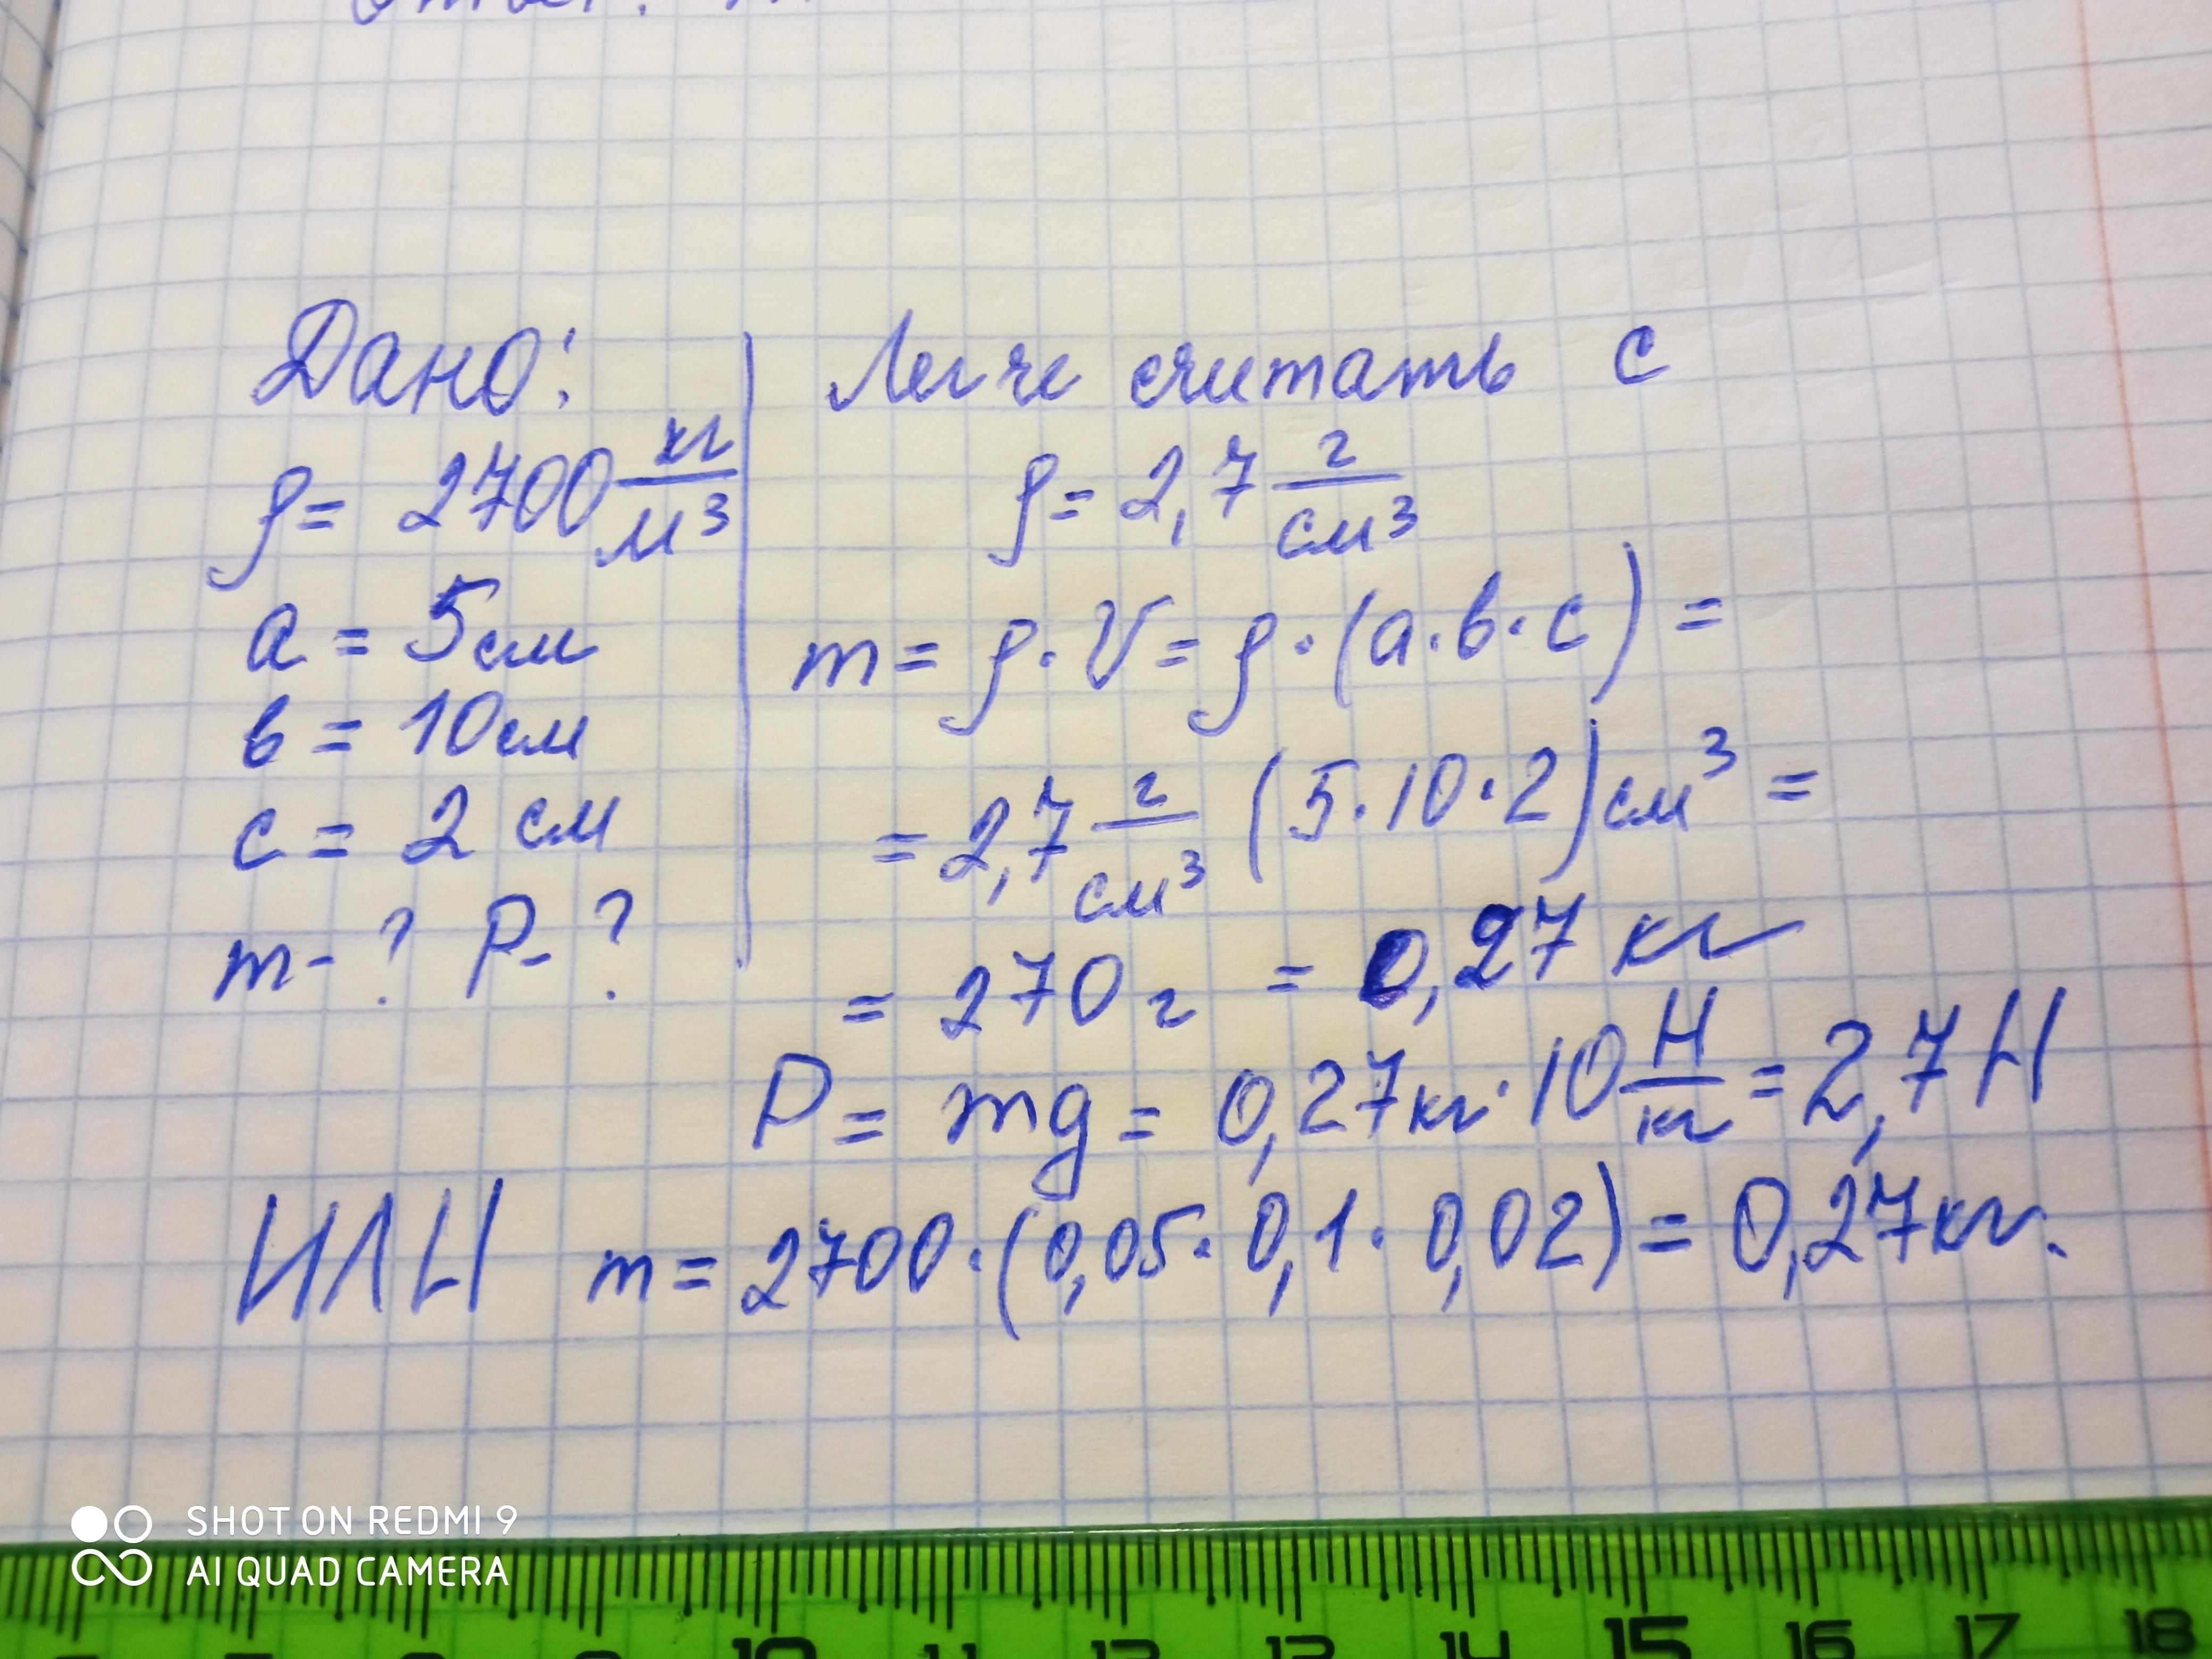 Дано:
ρ = 2700 кг/м³
a = 5 см
в = 10 см
c = 2 см
m - ? P - ?
Легче считать с
ρ = 2,7 г/см³
m = ρ · V = ρ · (a · в · c) =
= 2,7 г/см³ (5 · 10 · 2) см³ =
= 270 г = 0,27 кг
P = mg = 0,27 кг · 10 Н/кг = 2,7 Н
ИЛИ m = 2700 · (0,05 · 0,1 · 0,02) = 0,27 кг.
SHOT ON REDMI 9
AI QUAD CAMERA
10 11 12 13 14 15 16 17 18